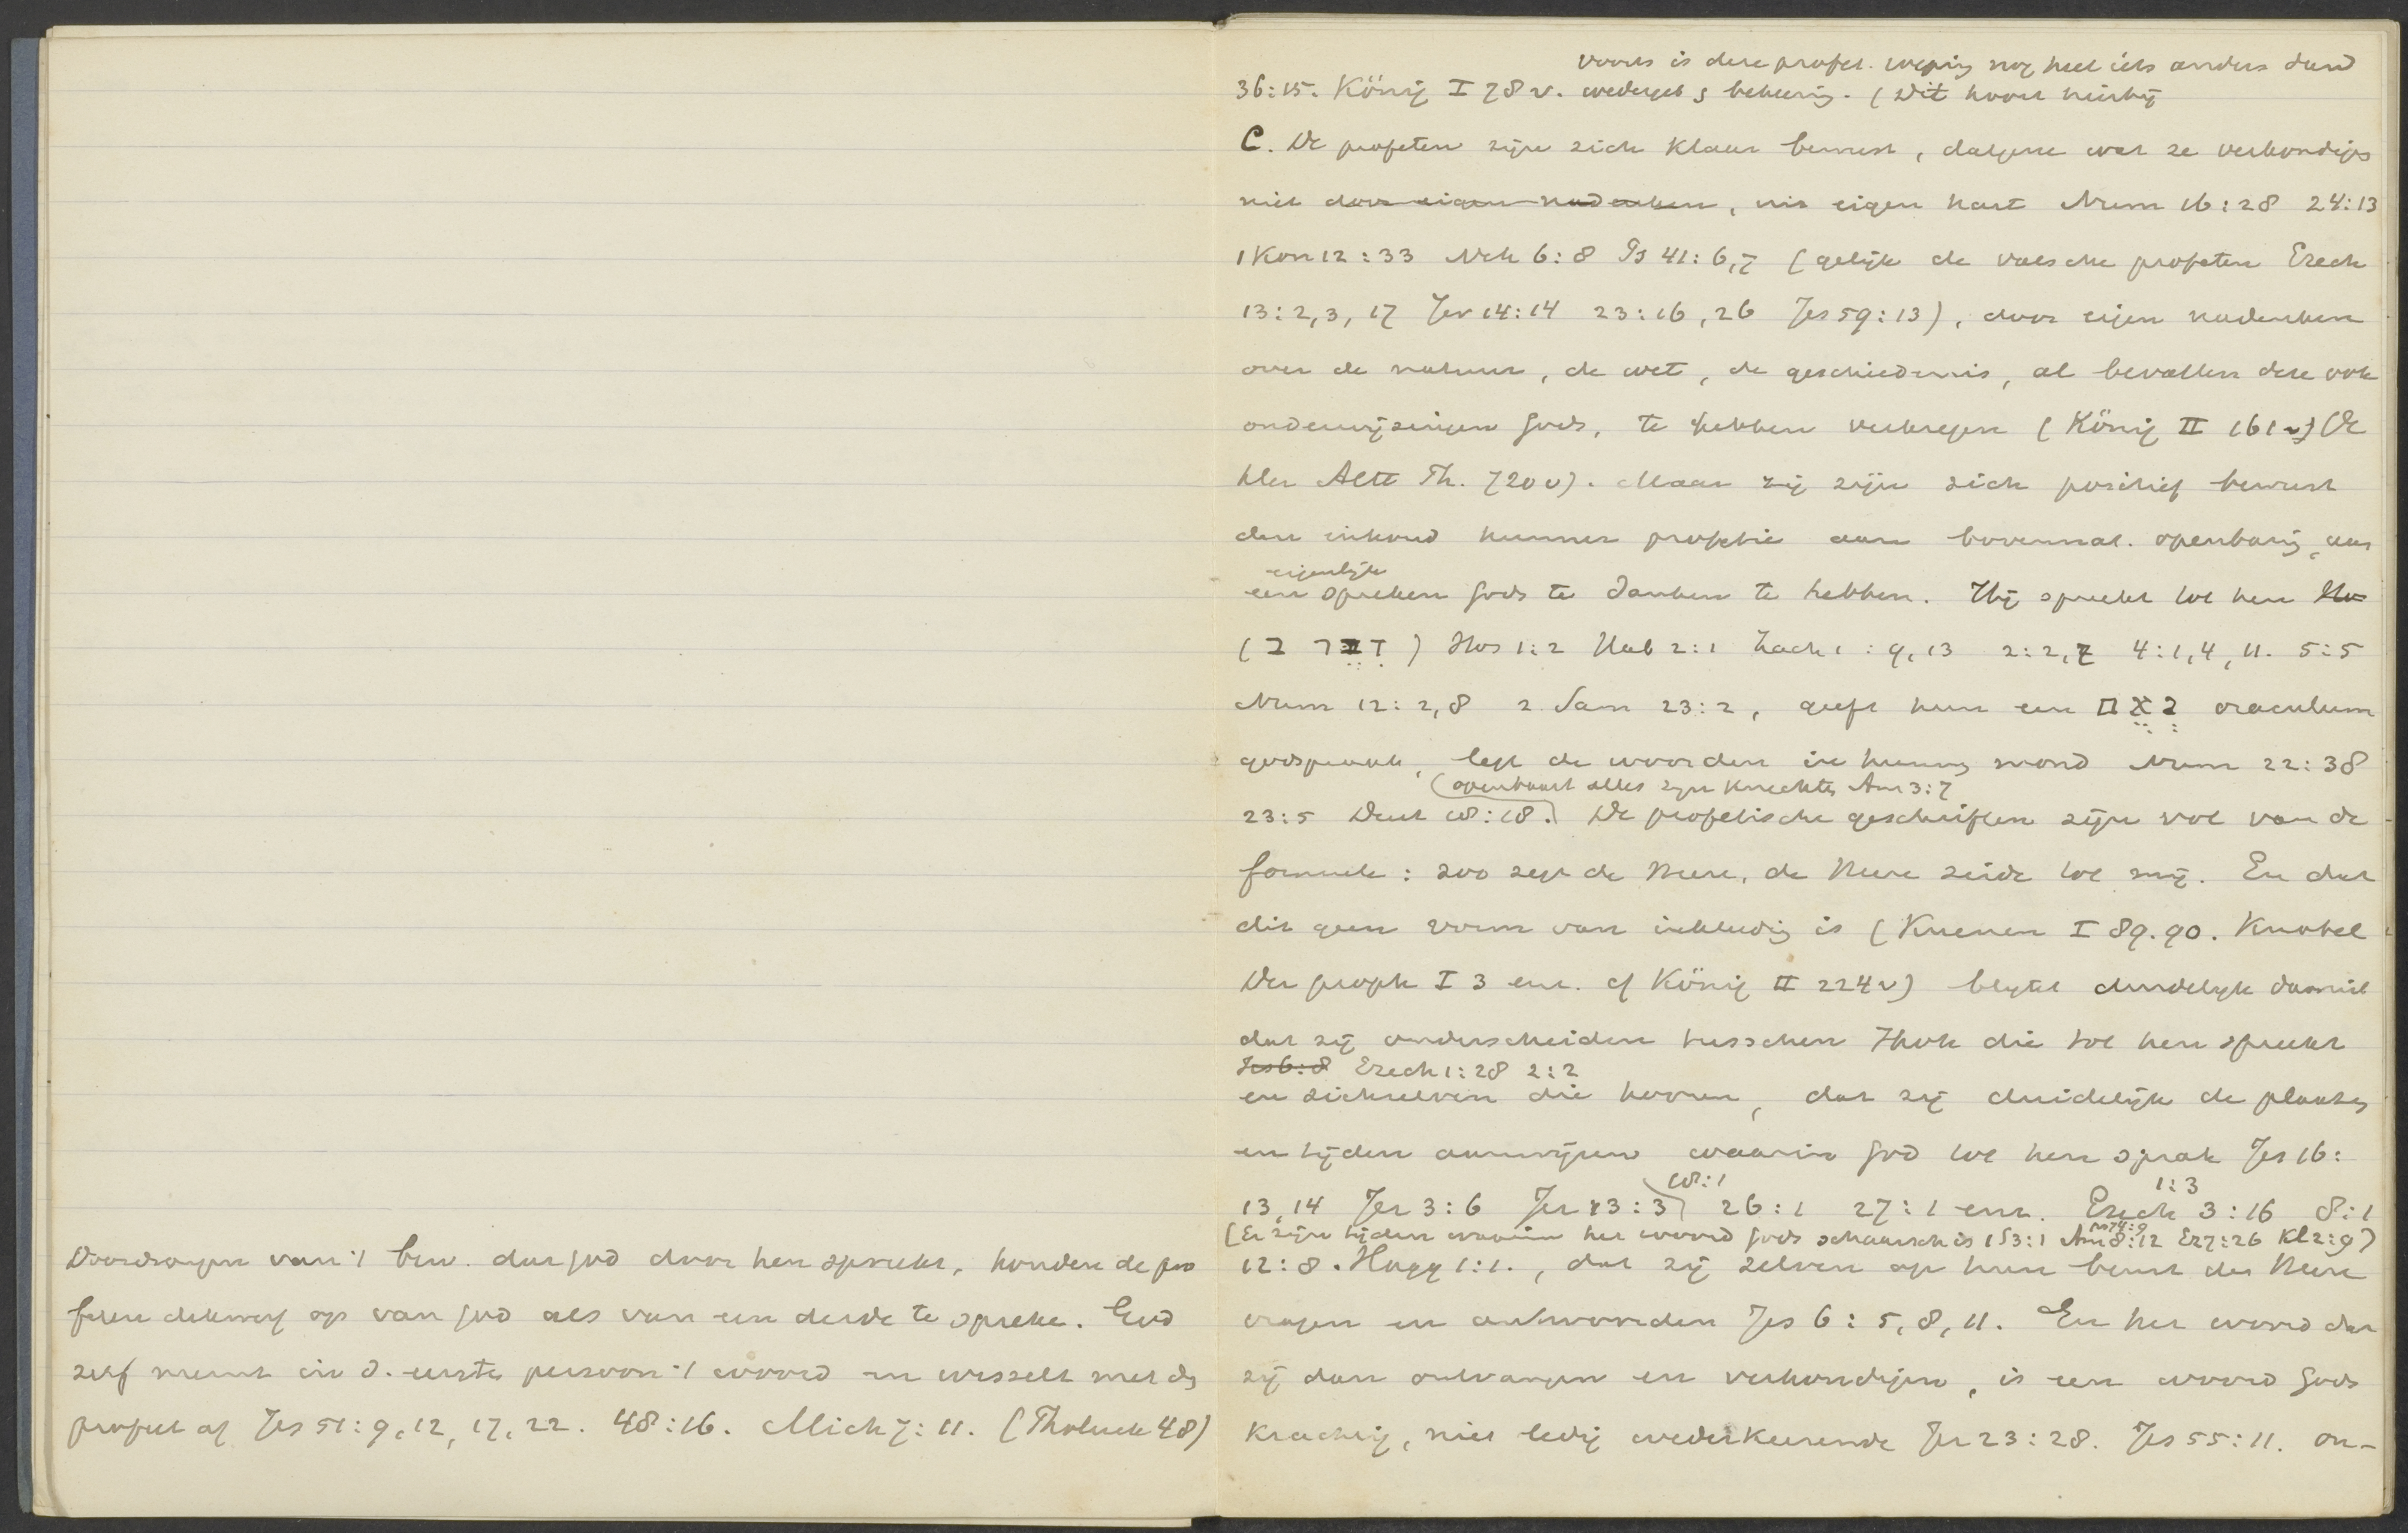 Doordrongen van 't bew. dat God door hen spreekt, houden de pro
feten dikwerf op van God als van een derde te spreke. God
zelf neemt in d. eerste persoon 't woord en wisselt met de
profeet af Jes 51:9,12,17,22. 48:16. Mich 7:11. (Tholuck 48)
voorts is deze profet. roeping nog heel iets anders dan d
36:15. König I 78 v. wedergeb & bekeering. (Dit hoort hierbij
C. De profeten zijn zich klaar bewust, datgene wat ze verkondigen
niet door eigen nadenken, uit eigen hart Num 16:28 24:13
1 Kon 12:33 Neh 6:8 Ps 41:6,7 (gelijk de valsche profeten Ezech
13:2,3,17 Jer 14:14 23:16,26 Jes 59:13), door eigen nadenken
over de natuur, de wet, de geschiedenis, al bevatten deze ook
onderwijzingen Gods, te hebben verkregen (König II 161 v) (Oe
hler Altt Th. 720 v). Maar zij zijn zich positief bewust
den inhoud hunner profetie aan bovennat. openbaring, aan
eigenlijk
een spreken Gods te danken te hebben. Hij spreekt tot hen Ho
(דבר ב) Hos 1:2 Hab 2:1 Zach 1:9,13 2:2,7 4:1,4,11. 5:5
Num 12:2,8 2 Sam 23:2, geeft hun een נאם oraculum
godspraak, legt de woorden in hunnen mond Num 22:38
(openbaart alles zijn knechten Am 3:7
23:5 Deut 18:18.) De profetische geschriften zijn vol van de
formule: zoo zegt de Heere, de Heere zeide tot mij. En dat
dit geen vorm van inkleeding is (Kuenen I 89.90. Knobel
Der proph I 3 enz. cf König II 224 v) blijkt duidelijk daaruit
dat zij onderscheiden tusschen Jhvh die tot hen spreekt
Jes 6:8 Ezech 1:28 2:2
en zichzelven die hooren, dat zij duidelijk de plaatsen
en tijden aanwijzen waarin God tot hen sprak Jes 16:
18:1 1:3
13,14 Jer 3:6 Jer 13:3 26:1 27:1 enz. Ezech 3:16 8:1
Ps 74:9
(Er zijn tijden waarin het woord Gods schaarsch is 1 S 3:1 Am 8:12 Ez 7:26 Kl 2:9)
12:8. Hagg 1:1., dat zij zelven op hun beurt den Heere
vragen en antwoorden Jes 6:5,8,11. En het woord dat
zij dan ontvangen en verkondigen, is een woord Gods
krachtig, niet ledig wederkeerende Jer 23:28. Jes 55:11. on-